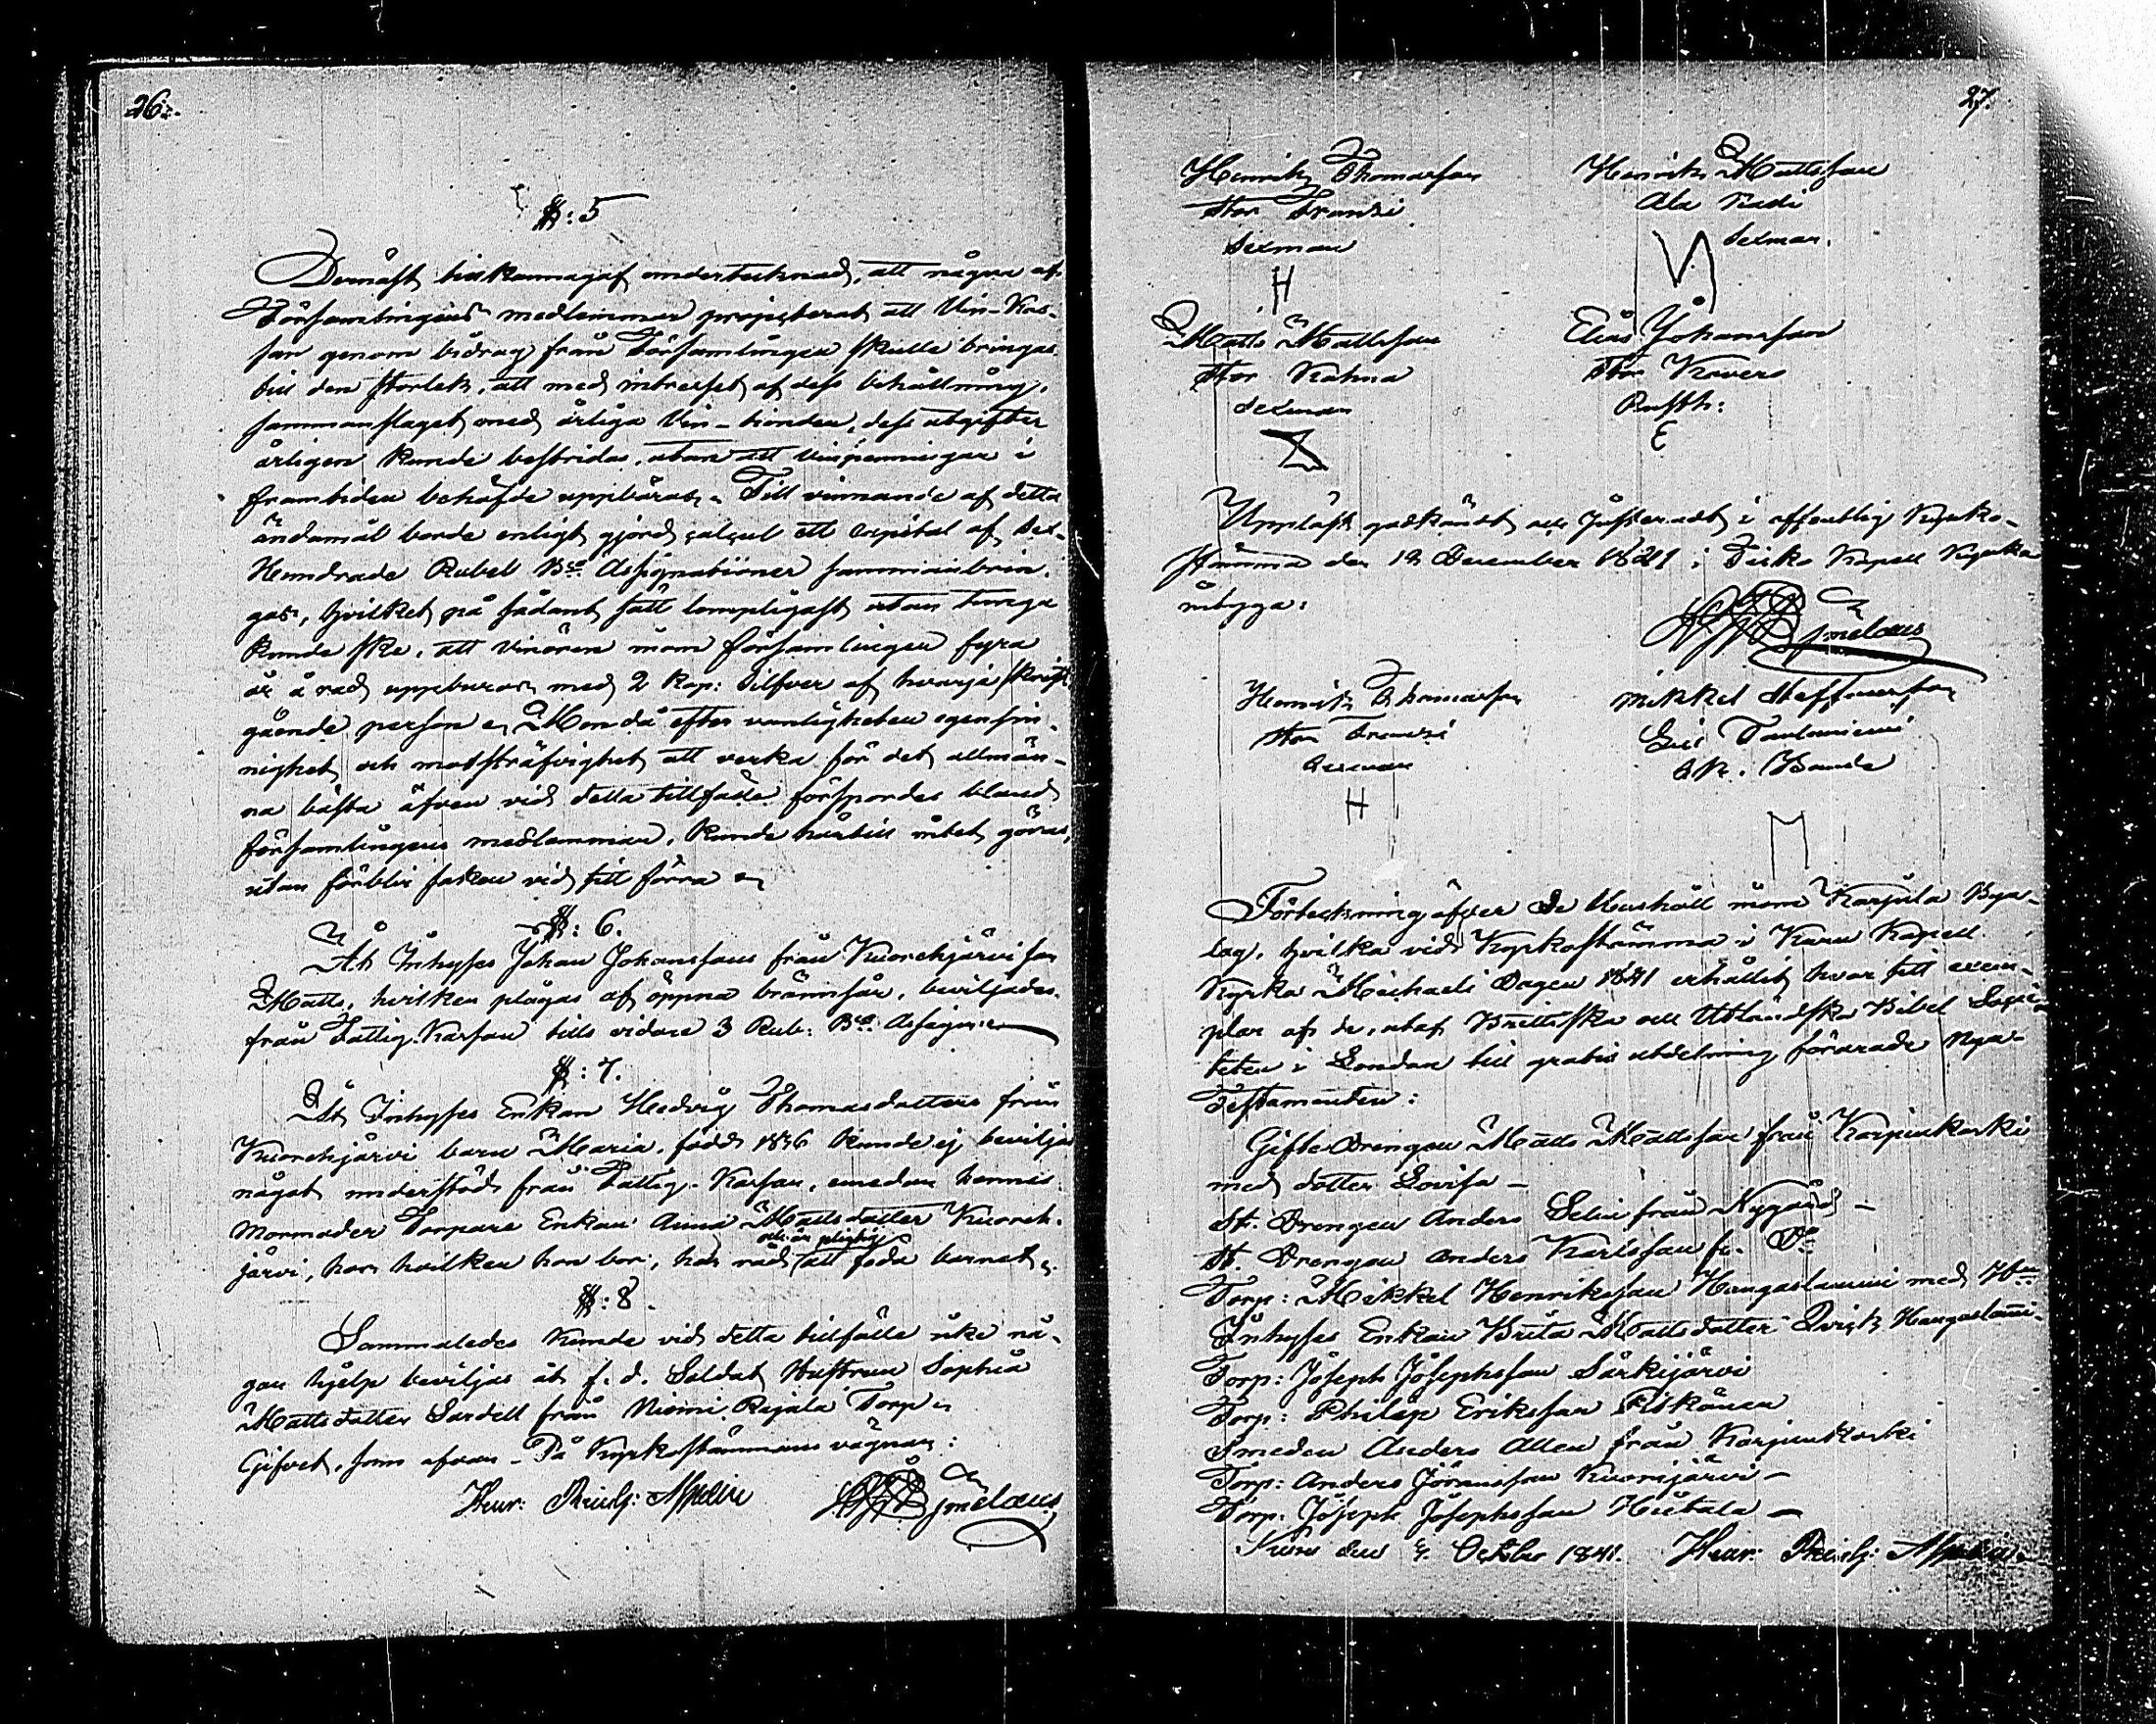 26.
§: 5
Dernäst tillkännagaf undertecknad, att några af
Församlingens medlemmar projecterat att Vin-Kas-
san genom bidrag från Församlingen skulle bringas
till den storlek, att med intresset af dess behållning,
sammanslaget med årliga Vin-tionden, dess utgifter
årligen kunde bestridas, utom att vinpenningar i
framtiden behöfde uppbäras. Till vinnande af detta
ändamål borde enligt gjord calcul ett capital af
Hundrade Rubel B:co Assignationer sammanbrin-
gas, hvilket på sådant sätt lämpligast utan tunga
kunde ske, att vinören inom församlingen fyra
år å rad uppburos med 2 kop: Silfver af hvarje skrift
gående person. Men då efter vanligheten egensin-
nighet och motsträfvighet att verka för det allmän-
na bästa äfven vid detta tillfälle förspordes bland
församlingens medlemmar, kunde härtill intet göras,
utan förblir saken vid sitt förra
§: 6.
Åt Inhyses Johan Johanssons från Kuorehjärvi son
Matts, hvilken plågas af öppna brännsår, beviljades
från Fattig-Kassan tills vidare 3 Rub: B:co Assign:
§: 7.
Åt Inhyses Enkan Hedvig Thomasdotters från
Kuorehjärvi barn Maria, född 1836 kunde ej beviljas
något understöd från Fattig-Kassan, emedan hennes
Mormoder Torpare Enkan Anna Mattsdotter Kuoreh-
och är pligtig
järvi, hos hvilken hon bor, har råd att föda barnet.
§: 8.
Sammaledes kunde vid detta tillfälle icke nå-
gon hjelp beviljas åt f. d. Soldat Hustrun Sophia
Mattsdotter Sardell från Niemi Rajala Torp
Gifvet, som ofvan. På Kyrkostämmans vägnar:
Henr: Reinh:
27.
Henrik Thomasson
Stor Fransi
Sexman
H
Henrik Mattsson
Ala
Sexman.
Matts Mattsson
Stor Kahna
Sexman
Elias Johansson
Stor Kovero
Rusth:
E
Uppläst, godkändt och Justeradt i offentlig Kyrko-
stämma den 12 December 1841 i Kapell Kyrka
intyga:
Henrik Thomasson
Stor Fransi
Sexman
H
Mikkel Steffansson
Bonde
M
Förteckning öfver de Hushåll inom Karjula Bya-
lag, hvilka vid Kyrkostämma i Kuru Kapell
Kyrka Michaeli Dagen 1841 erhållit hvar sitt exem-
plar af de, utaf Brittiska och Utländska Bibel Socie-
teten i London till gratis utdelning förärade Nya-
Testamenten:
Gifte Drengen Matts Mattsson från Karjenkoski
med dotter Lovisa –
St. Drengen Anders Selin från Nygård –
St. Drengen Anders Karlsson fr. D:o
Torp: Mikkel Henriksson Hangaslammi med H:u
Inhyses Enkan Brita Mattsdotter Qvick Hangaslami
Torp: Joseph Josephsson Särkijärvi
Torp: Philip Eriksson
Smeden Anders Allen från Karjenkoski
Torp: Anders Jöransson Kuorejärvi –
Torp: Joseph Josephsson Hietala –
Kuru den 4 October 1841. Henr: Reinh: